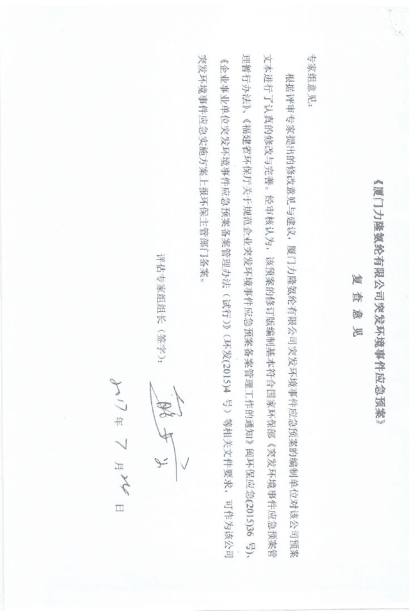 《厦门力隆氨纶有限公司突发环境事件应急预案》
复 查 意 见
专家组意见：
根据评审专家提出的修改意见与建议，厦门力隆氨纶有限公司突发环境事件应急预案的编制单位对该公司预案
文本进行了认真的修改与完善。经审核认为，该预案的修订版编制基本符合国家环保部《突发环境事件应急预案管
理暂行办法》、《福建省环保厅关于规范企业突发环境事件应急预案备案管理工作的通知》闽环保应急(2015)36 号)、
《企业事业单位突发环境事件应急预案备案管理办法（试行）》（环发(2015)4 号）等相关文件要求，可作为该公司
突发环境事件应急实施方案上报环保主管部门备案。
评估专家组组长（签字）：
2017 年 7 月 24 日